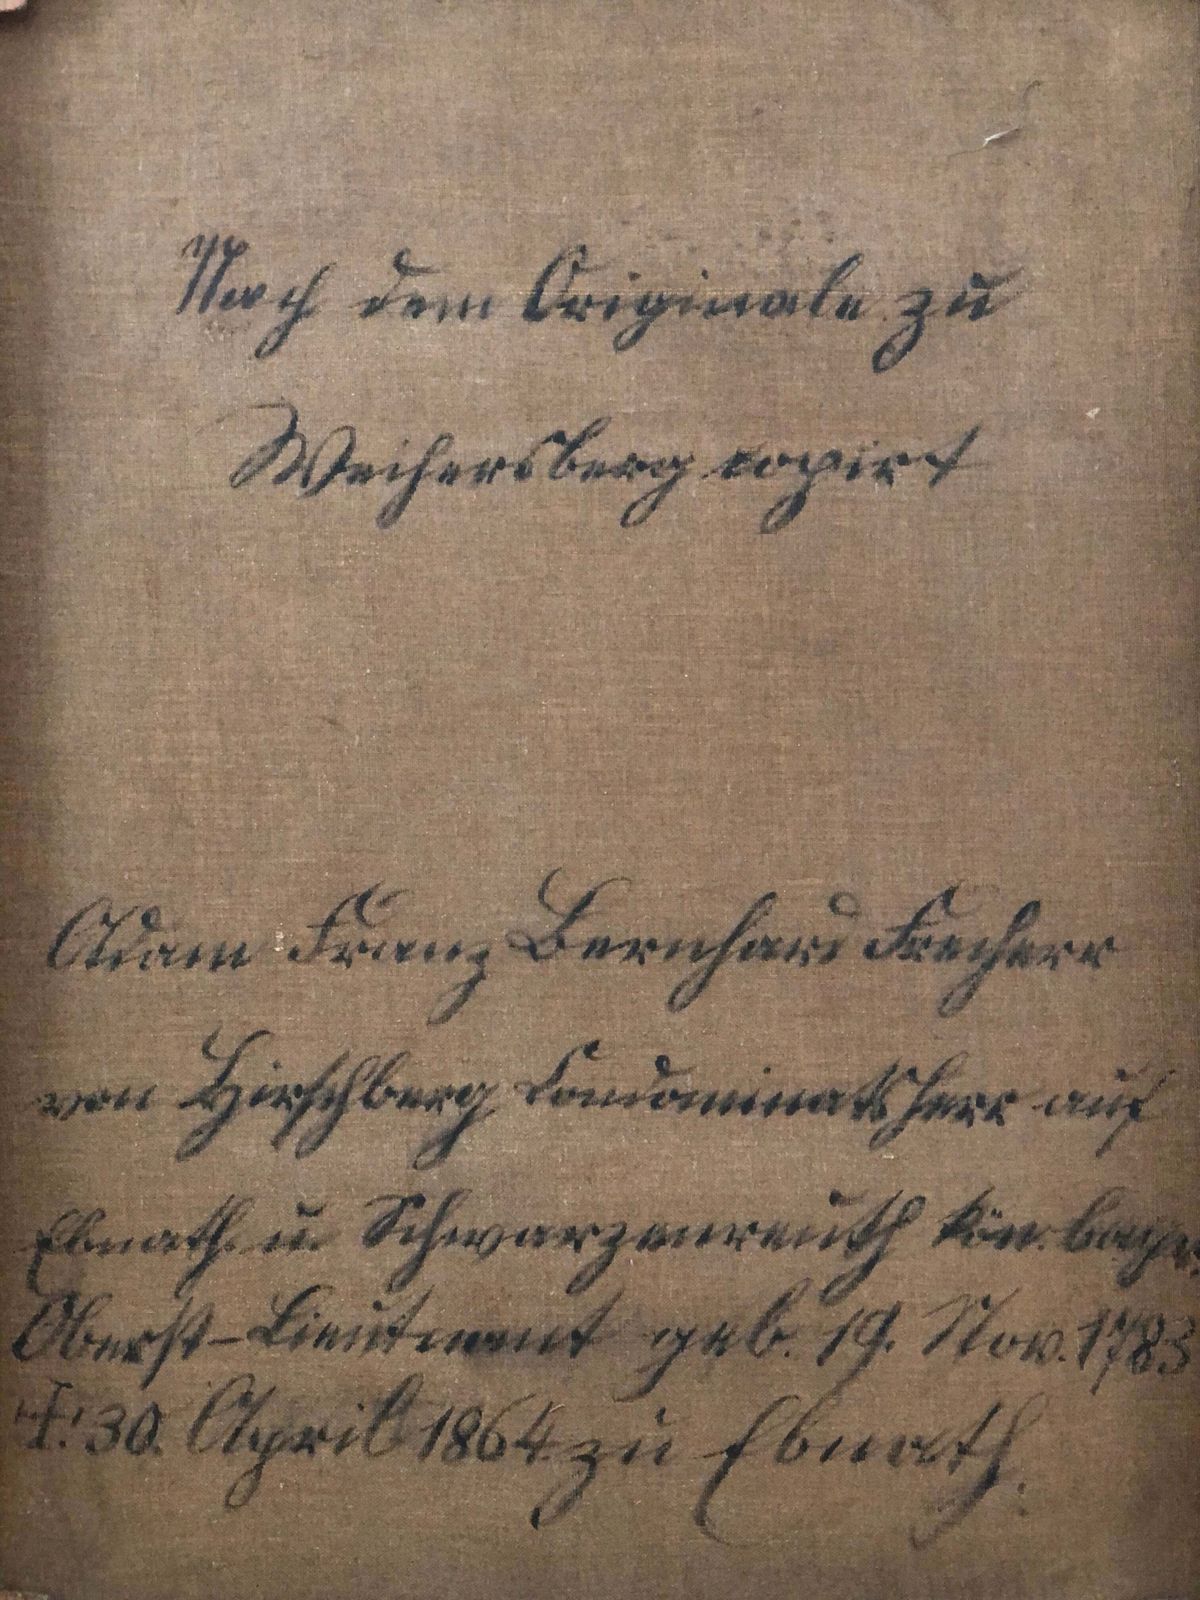 Nach dem Originale zu
Weihersberg copirt
Adam Franz Bernhard Freiherr
von Hirschberg Condominatsherr auf
Ebnath u Schwarzenreuth kön. bayr.
Oberst-Lieutnant geb. 19. Nov. 1783
†. 30. April 1864 zu Ebnath.